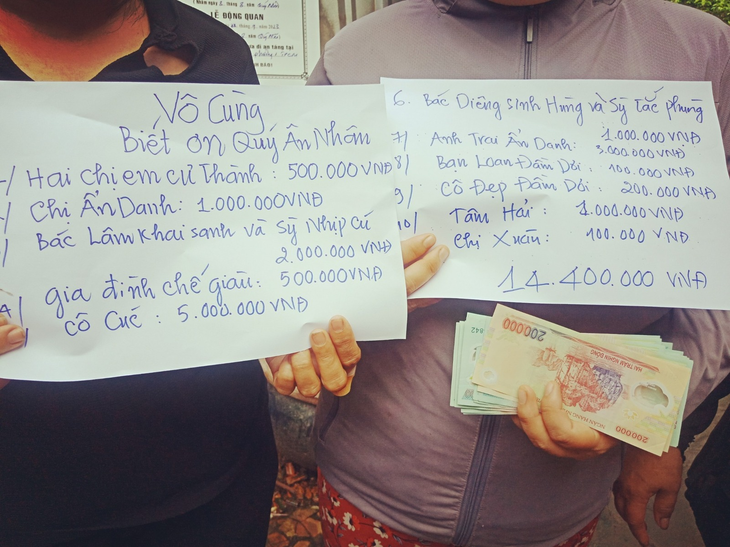 LỄ ĐỘNG QUAN
Vô Cùng
Biết ơn Quý Ân Nhân
/ Hai chị em cư Thành : 500.000 VNĐ
/ Chị Ẩn Danh : 1.000.000 VNĐ
/ Bác Lâm Khai sanh và Sỹ Nhịp Cú
2.000.000 VNĐ
4/ gia đình chế giàu: 500.000 VNĐ
/ Cô Cúc : 5.000.000 VNĐ
6. Bác Diêng Sinh Hùng và Sỹ Tắc Phụng
1.000.000 VNĐ
7/ Anh Trai Ẩn Danh: 3.000.000 VNĐ
8/ Bạn Loan Đầm Dơi : 100.000 VNĐ
9/ Cô Đẹp Đầm Dơi : 200.000 VNĐ
10/ Tâm Hải : 1.000.000 VNĐ
Chị Xuân : 100.000 VNĐ
14.400.000 VNĐ
200000
HAI TRĂM NGHÌN ĐỒNG
200000